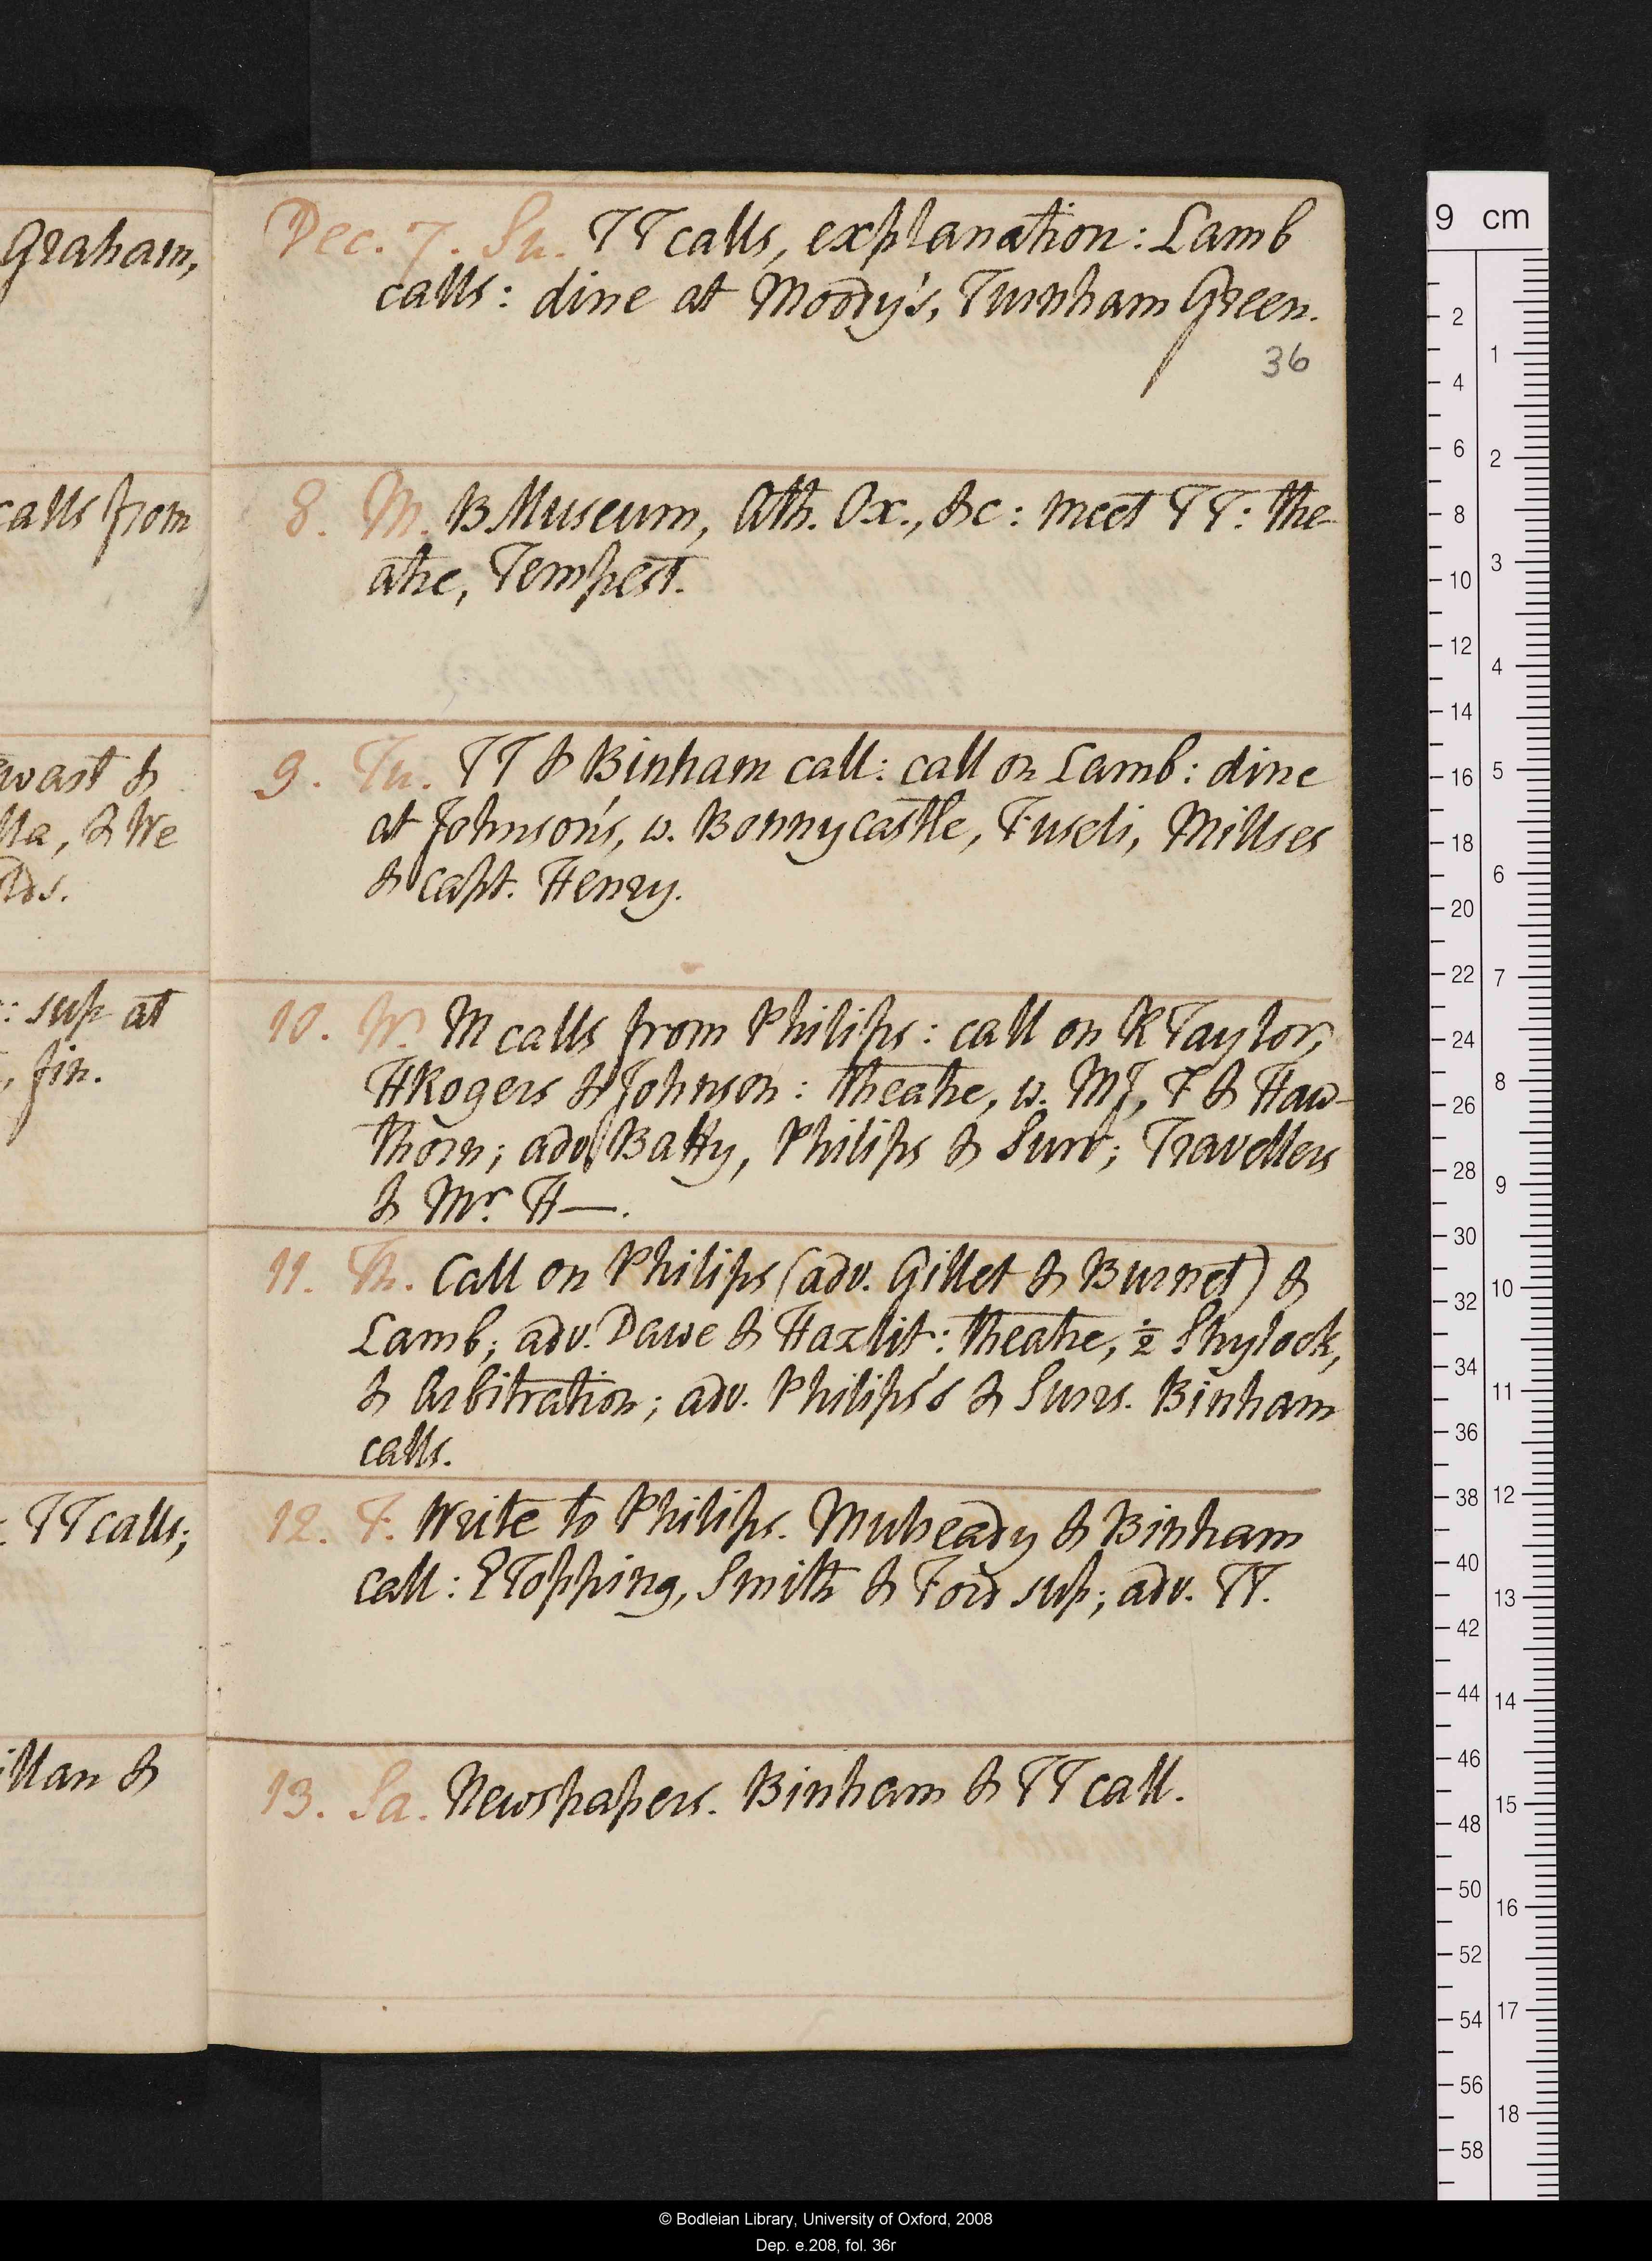 Graham,
calls from
wast &
lla, & We
lds.
: sup at
, fin.
: TT calls;
illan &
Dec. 7. Su. TT calls, explanation: Lamb
calls: dine at Moody's, Turnham Green.
36
8. M. B Museum, Ath. Ox., &c: meet TT: the-
atre, Tempest.
9. Tu. TT & Binham call: call on Lamb: dine
at Johnson's, w. Bonnycastle, Fuseli, Millses
& capt. Henry.
10. W. M calls from Philips: call on R Taylor,
H Rogers & Johnson: theatre, w. MJ, F & Haw-
thorn; adv. Batty, Philips & Surr; Travellers
& Mr. H—.
11. Th. Call on Philips (adv. Gillet & Burnet) &
Lamb; adv. Dawe & Hazlit: theatre, ½ Shylock,
& Arbitration; adv. Philips's & Surrs. Binham
calls.
12. F. Write to Philips. Mulready & Binham
call: E Topping, Smith & Ford sup; adv. TT.
13. Sa. Newspapers. Binham & TT call.
9 cm
2
4
6
8
10
12
14
16
18
20
22
24
26
28
30
32
34
36
38
40
42
44
46
48
50
52
54
56
58
1
2
3
4
5
6
7
8
9
10
11
12
13
14
15
16
17
18
© Bodleian Library, University of Oxford, 2008
Dep. e.208, fol. 36r